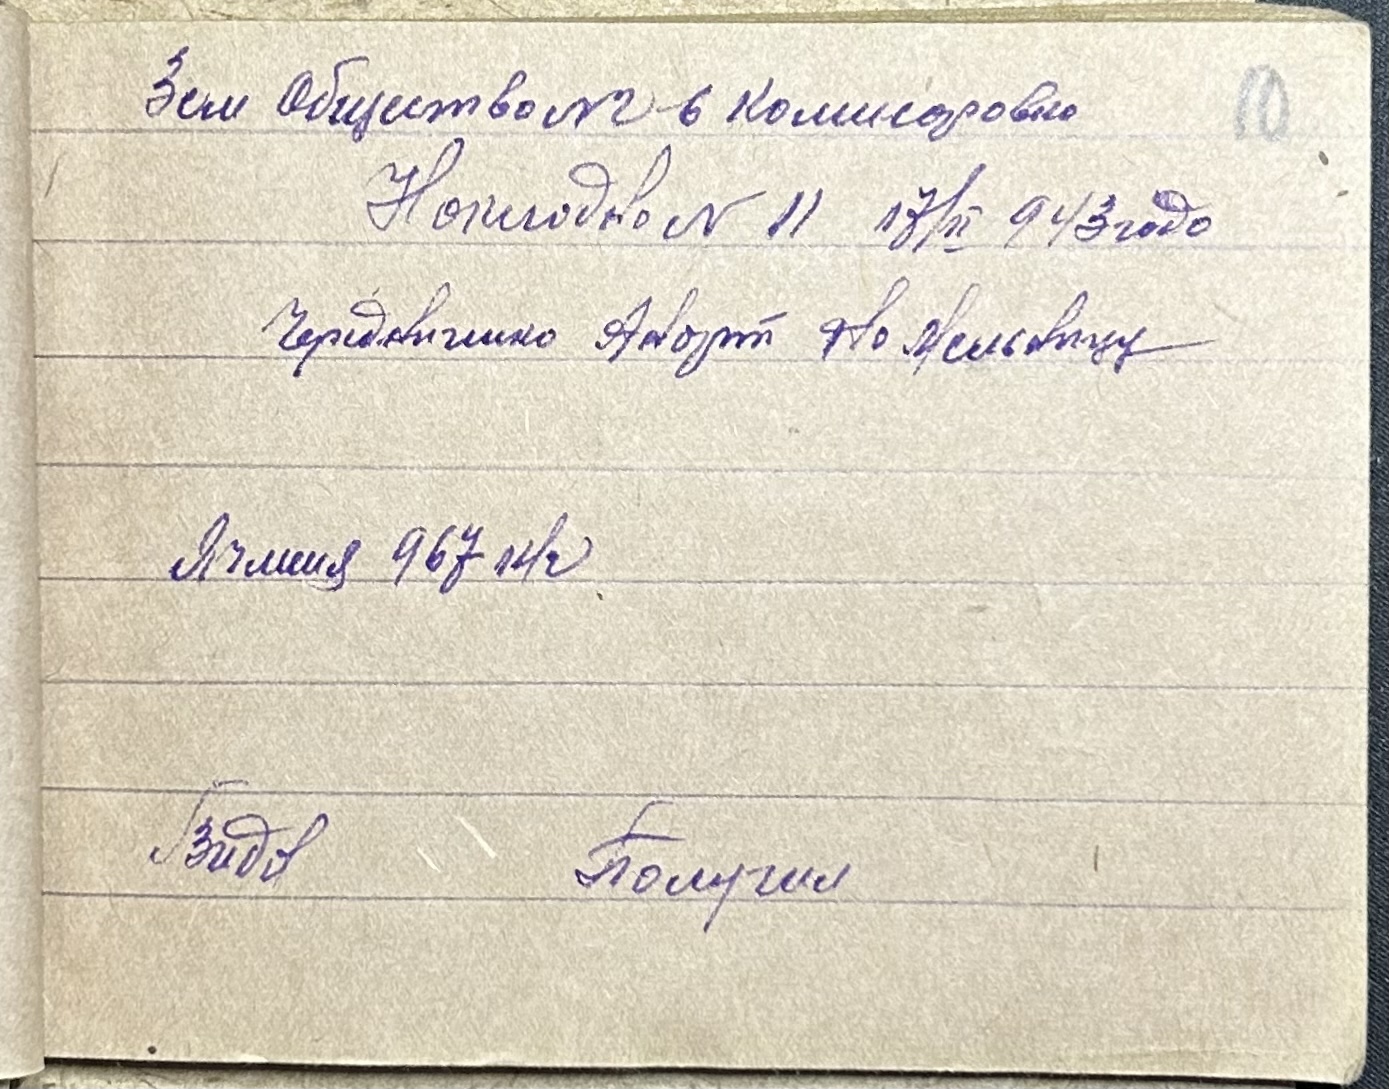 Зем Общество №2 в Комисаровка 10
Накладна № 11 17/II 943 года
Чередниченко Андрей На Мельницу
Ячменя 967 кг
Видав Получил